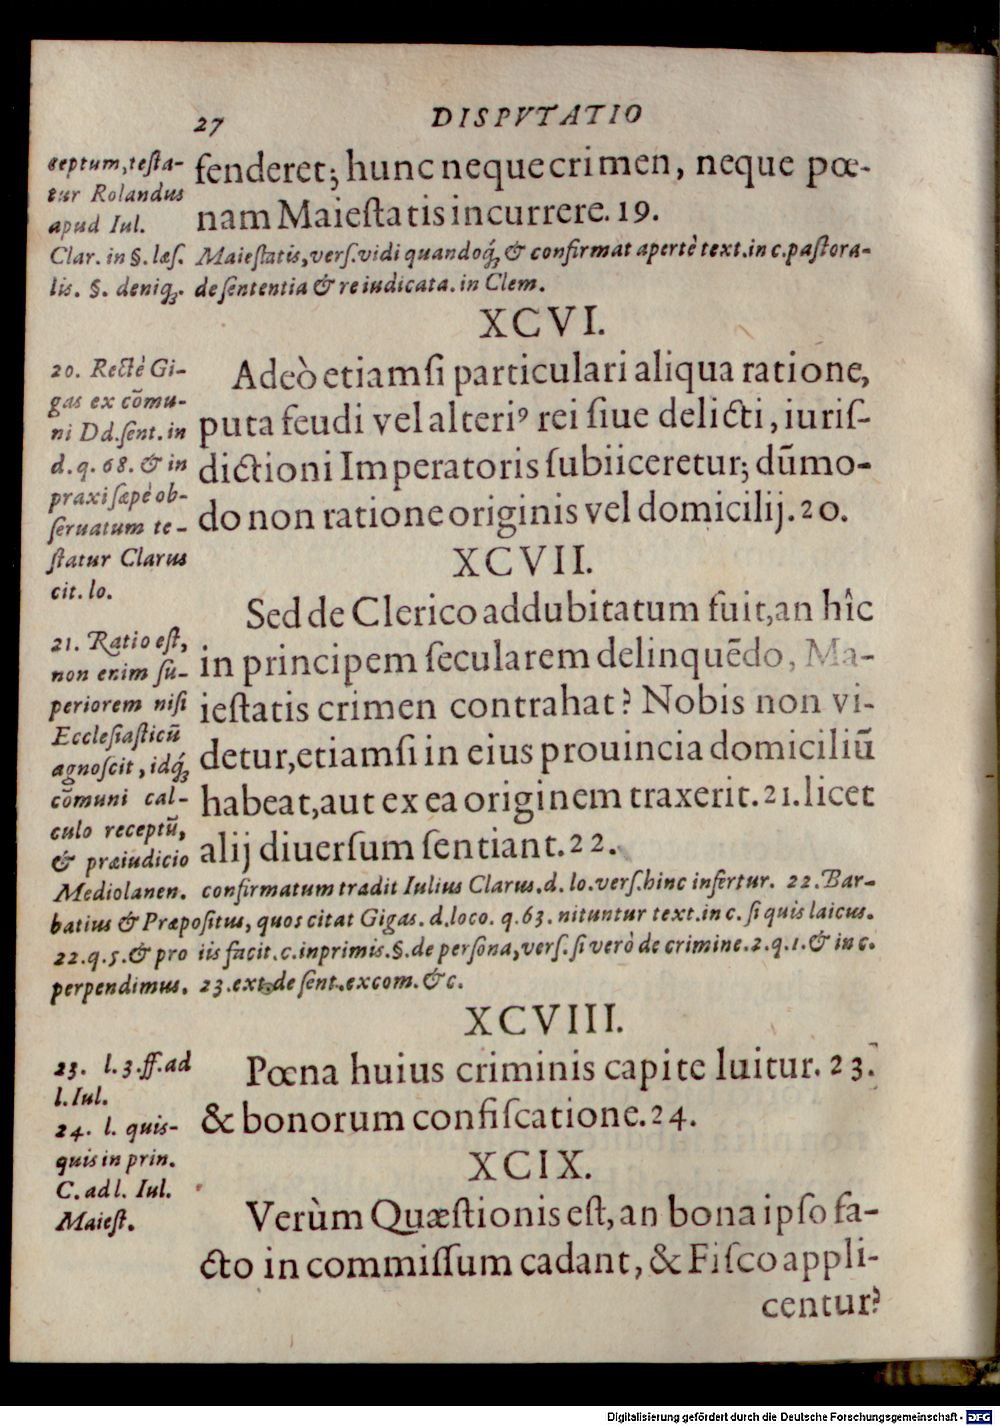 27 DISPVTATIO
fenderet; hunc neque crimen, neque pœ-
nam Maiestatis incurrere. 19.
ceptum, testa-
tur Rolandus
apud Iul.
Clar. in §. læs. Maiestatis, vers. vidi quandoq́3 & confirmat apertè text. in c. pastora-
lis. §. deniq3. de sententia & re iudicata. in Clem.
XCVI.
Adeò etiamsi particulari aliqua ratione,
puta feudi vel alteriꝰ rei siue delicti, iuris-
dictioni Imperatoris subiiceretur; dūmo-
do non ratione originis vel domicilij. 20.
20. Rectè Gi-
gas ex cōmu-
ni Dd. sent. in
d. q. 68. & in
praxi sæpè ob-
seruatum te-
statur Clarus
cit. lo.
XCVII.
Sed de Clerico addubitatum fuit, an hîc
in principem secularem delinquēdo, Ma-
iestatis crimen contrahat? Nobis non vi-
detur, etiamsi in eius prouincia domiciliū
habeat, aut ex ea originem traxerit. 21. licet
alij diuersum sentiant. 22.
21. Ratio est,
non enim su-
periorem nisi
Ecclesiasticū
agnoscit, idq́3
cōmuni cal-
culo receptū,
& præiudicio
Mediolanen. confirmatum tradit Iulius Clarus. d. lo. vers. hinc infertur. 22. Bar-
batius & Præpositus, quos citat Gigas. d. loco. q. 63. nituntur text. in c. si quis laicus.
22. q. 5. & pro iis facit. c. inprimis. §. de persona, vers. si verò de crimine. 2. q. 1. & in c.
perpendimus. 23. ext. de sent. excom. &c.
XCVIII.
Pœna huius criminis capite luitur. 23.
& bonorum confiscatione. 24.
23. l. 3. ff. ad
l. Iul.
24. l. quis-
quis in prin.
C. ad l. Iul.
Maiest.
XCIX.
Verùm Quæstionis est, an bona ipso fa-
cto in commissum cadant, & Fisco appli-
centur?
Digitalisierung gefördert durch die Deutsche Forschungsgemeinschaft - DFG